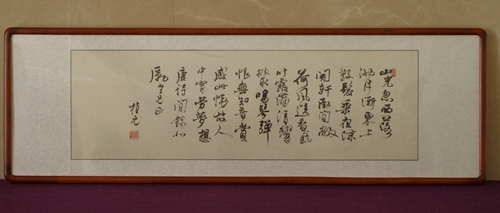 山光忽西落
池月漸東上
散髮乘夜涼
開軒卧閒敞
荷風送香氣
竹露滴清響
欲取鳴琴彈
恨無知音賞
感此懷故人
中宵勞夢想
唐詩
植元